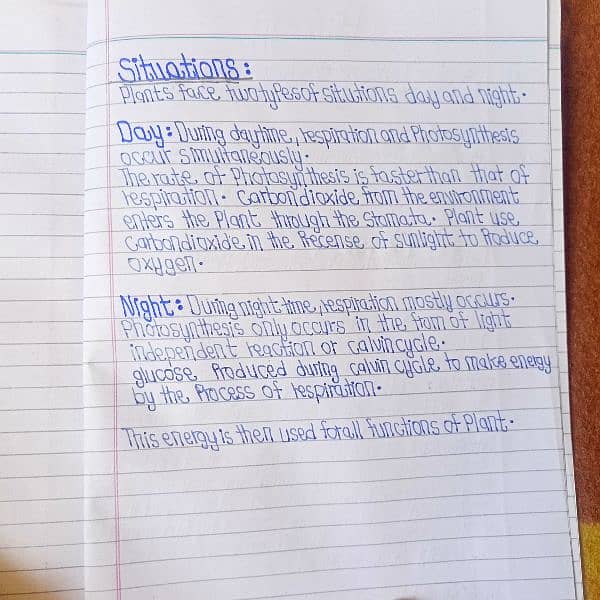 Situations:
Plants face two types of situtions day and night.
Day: During daytime, respiration and Photosynthesis
occur simultaneously.
The rate of Photosynthesis is faster than that of
respiration. Carbondioxide from the environment
enters the Plant through the Stomata. Plant use
Carbondioxide in the Precense of sunlight to Produce
oxygen.
Night: During night-time, respiration mostly occurs.
Photosynthesis only occurs in the from of light
independent reaction or calvin cycle.
glucose Produced during calvin cycle to make energy
by the Process of respiration.
This energy is then used for all functions of Plant.